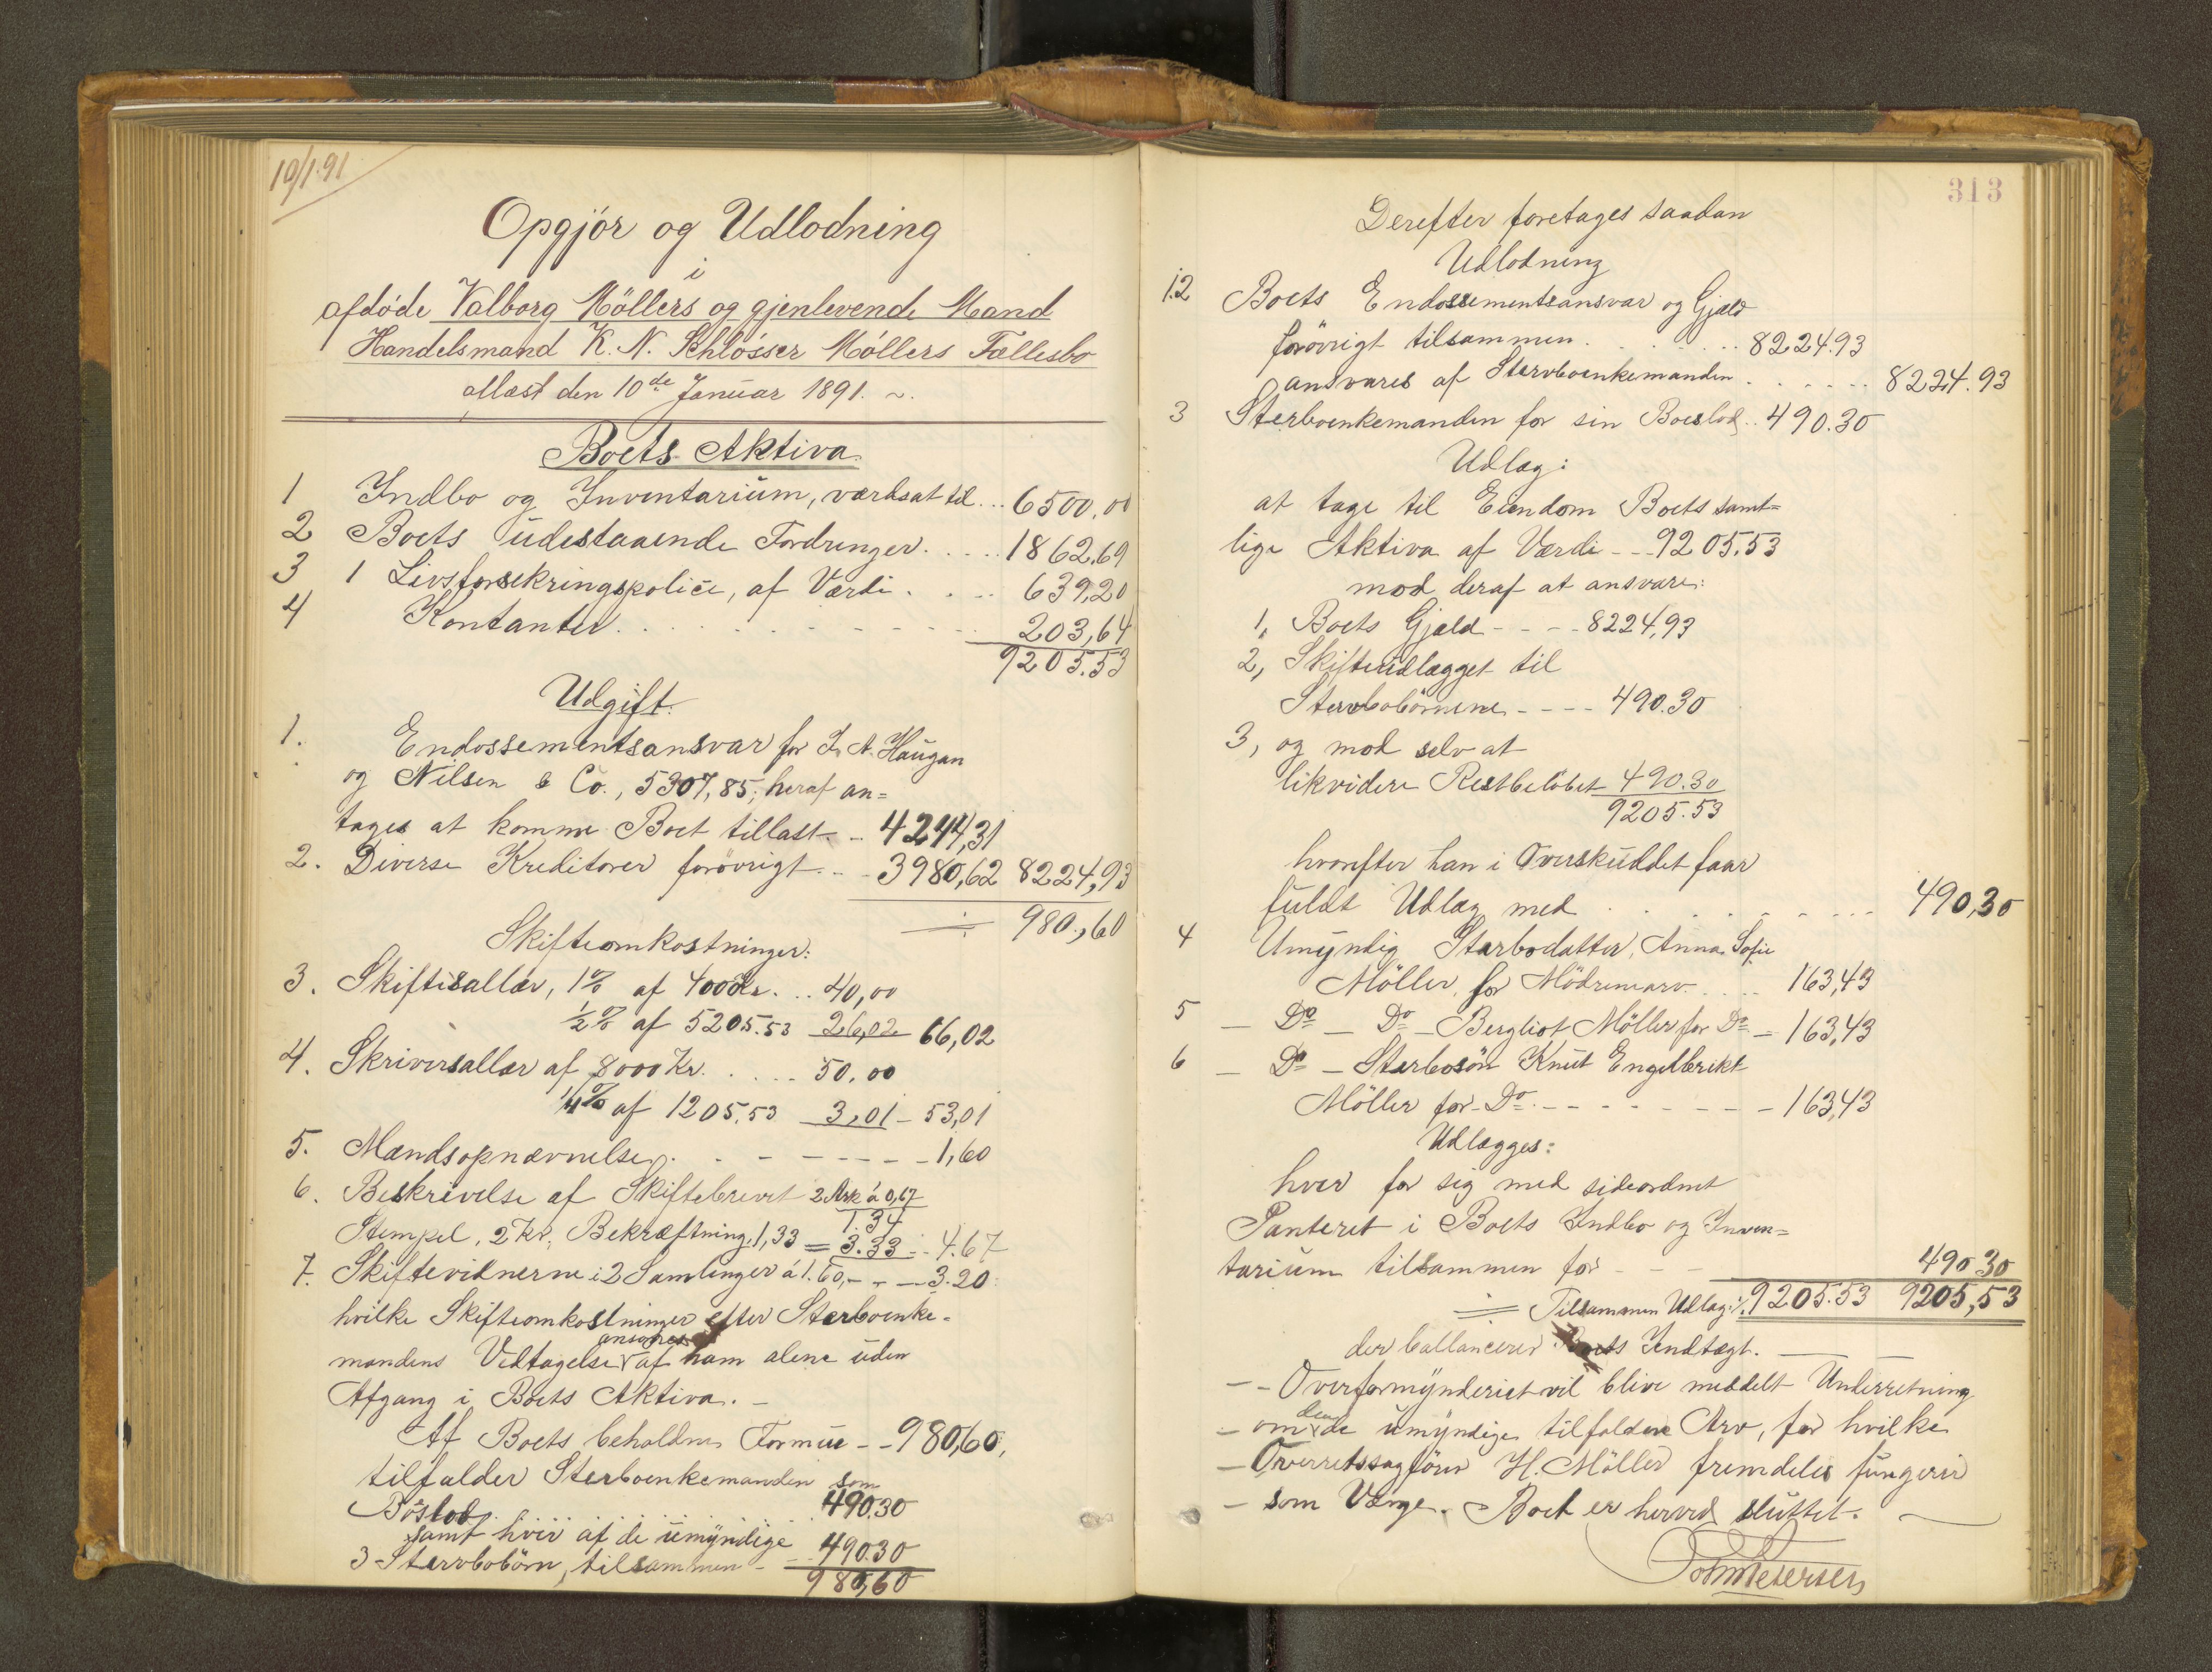 10/1.91
Opgjör og Udlodning
i
afdöde Valborg Möllers og gjenlevende Mand
Handelsmand K. N. Schlösser Möllers Fællesbo
aflæst den 10de Januar 1891. ~.
Boets Aktiva.
1 Indbo og Inventarium, værdsat til... 6500.00
2 Boets udestaaende Fordringer..... 1862,69
3 1 Livsforsekringspolice, af Værdi.... 639,20
4 Kontanter. 203,64
9205.53
Udgift:
1. Endossementsansvar for L. A. Haugan
og Nilsen & Co., 5307,85; heraf an=
tages at komme Boet tillast - 4244,31
2. Diverse Kreditorer forövrigt.- - 3980,62 8224,93
÷ 980,60
Skifteomkostninger:
3. Skiftesallær, 1% af 4000 Kr... 40,00
½% af 5205.53 26,02 66,02
4. Skriversallær af 8000 Kr..... 50.00
¼% af 1205.53 3,01 - 53,01
5. Mændsopnævnelse. - - - - - - 1,60
6. Beskrivelse af Skiftebrevet 2 Ark á 0,67
1.34
Stempel, 2 Kr., Bekræftning, 1,33 = 3.33 - 4.67
7. Skiftevidnerne i 2 Samlinger á 1.60,- - - 3.20
hvilke Skifteomkostninger efter Sterboenke-
ansvares
mandens Vedtagelse af ham alene uden
Afgang i Boets Aktiva. -
Af Boets beholdne Formue - - 980,60,
tilfalder Sterboenkemanden som
Böslod. 490.30
samt hver af de umyndige
3 Stervbobörn, tilsammen - 490.30
980,60
313
Derefter foretages saadan
Udlodning
1.2 Boets Endossementsansvar og Gjæld
forövrigt tilsammen. 8224.93
ansvares af Stervboenkemanden...... 8224.93
3 Sterboenkemanden for sin Boeslod.. 490.30
Udlæg:
at tage til Eiendom Boets samt=
lige Aktiva af Værdi - - 9205.53
mod deraf at ansvare:
1, Boets Gjæld - - - - 8224,93
2, Skifteudlægget til
Stervbobörnene - - - - 490.30
3, og mod selv at
likvidere Restbelöbet 490.30
9205.53
hvorefter han i Overskuddet faar
fuldt Udlæg med 490,30
4 Umyndig Starbodatter, Anna Sofie
Möller, for Mödrenearv..... 163,43
5 - Do - Do - Bergliot Möller for Do - 163,43
6 - Do - Sterbosön Knut Engelbrikt
Möller for Do. - - - - - - - 163,43
Udlægges:
hver for sig med sideordnet
Panteret i Boets Indbo og Inven=
tarium tilsammen for - - - 490 30
÷ Tilsammen Udlæg: 9205.53 9205,53
der ballancerer Boets Indtægt. -
- - Overformynderiet vil blive meddelt Underretning
den
- om de umyndige tilfaldne Arv, for hvilke
- Overretssagförer H. Möller fremdeles fungerer
- som Værge. Boet er herved sluttet. -